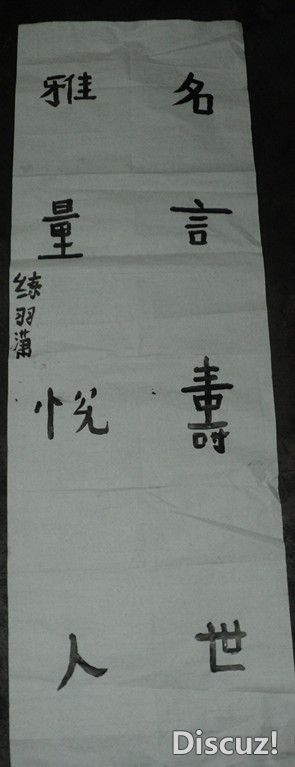 名言壽世
雅量悅人
练羽潇
Discuz!